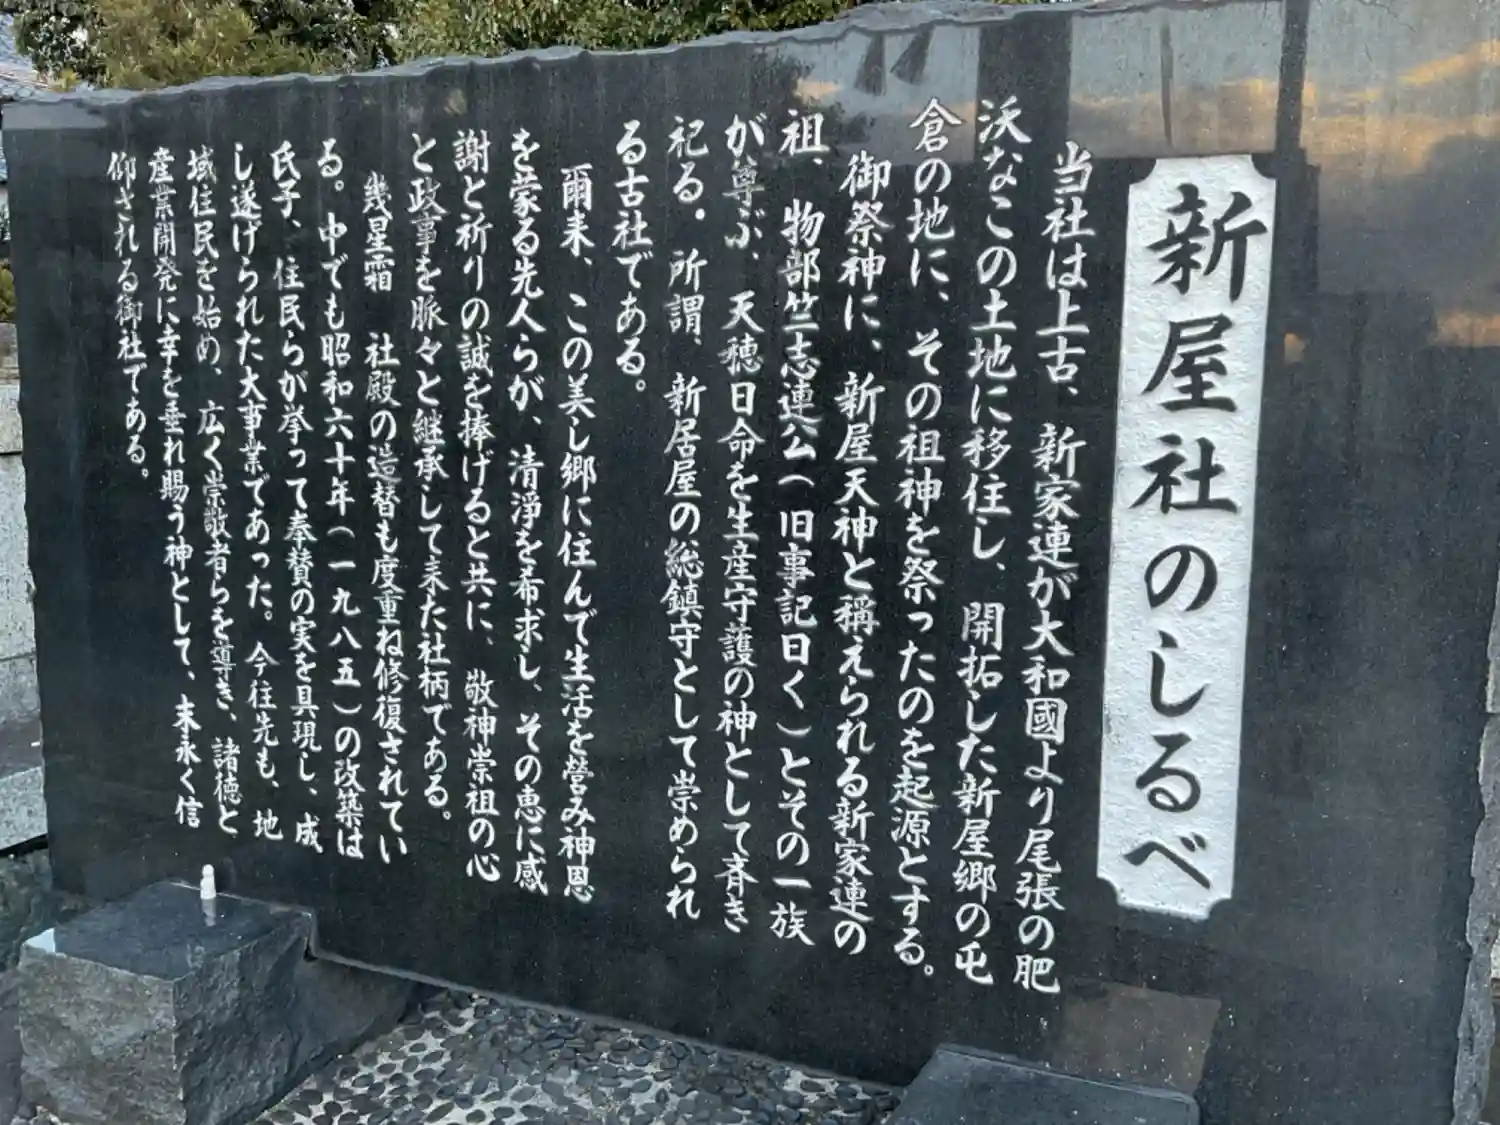 新屋社のしるべ
当社は上古、新家連が大和國より尾張の肥
沃なこの土地に移住し、開拓した新屋郷の屯
倉の地に、その祖神を祭ったのを起源とする。
御祭神に、新屋天神と稱えられる新家連の
祖、物部竺志連公(旧事記曰く)とその一族
が尊ぶ、天穂日命を生産守護の神として斉き
祀る。所謂、新居屋の総鎮守として崇められ
る古社である。
爾来、この美し郷に住んで生活を営み神恩
を蒙る先人らが、清淨を希求し、その恵に感
謝と祈りの誠を捧げると共に、敬神崇祖の心
と政事を脈々と継承して来た社柄である。
幾星霜 社殿の造替も度重ね修復されてい
る。中でも昭和六十年(一九八五)の改築は
氏子、住民らが挙って奉賛の実を具現し、成
し遂げられた大事業であった。今往先も、地
域住民を始め、広く崇敬者らを導き、諸徳と
産業開発に幸を垂れ賜う神として、末永く信
仰される御社である。